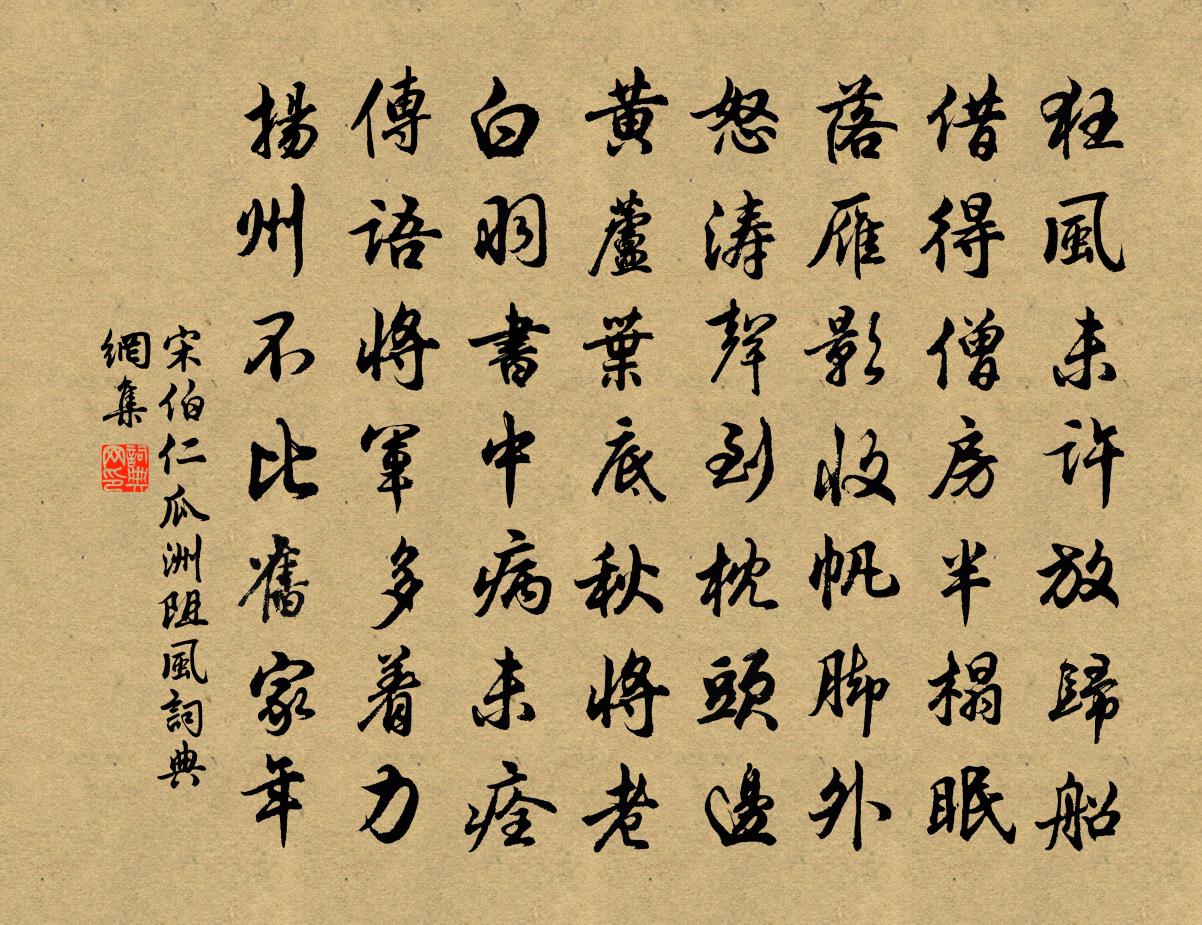 狂風未許放歸船
借得僧房半榻眠
落雁影收帆脚外
怒濤聲到枕頭邊
黃蘆葉底秋將老
白羽書中病未痊
傳語將軍多着力
揚州不比舊家年
宋伯仁瓜洲阻風詞典
網集
詞典
网印